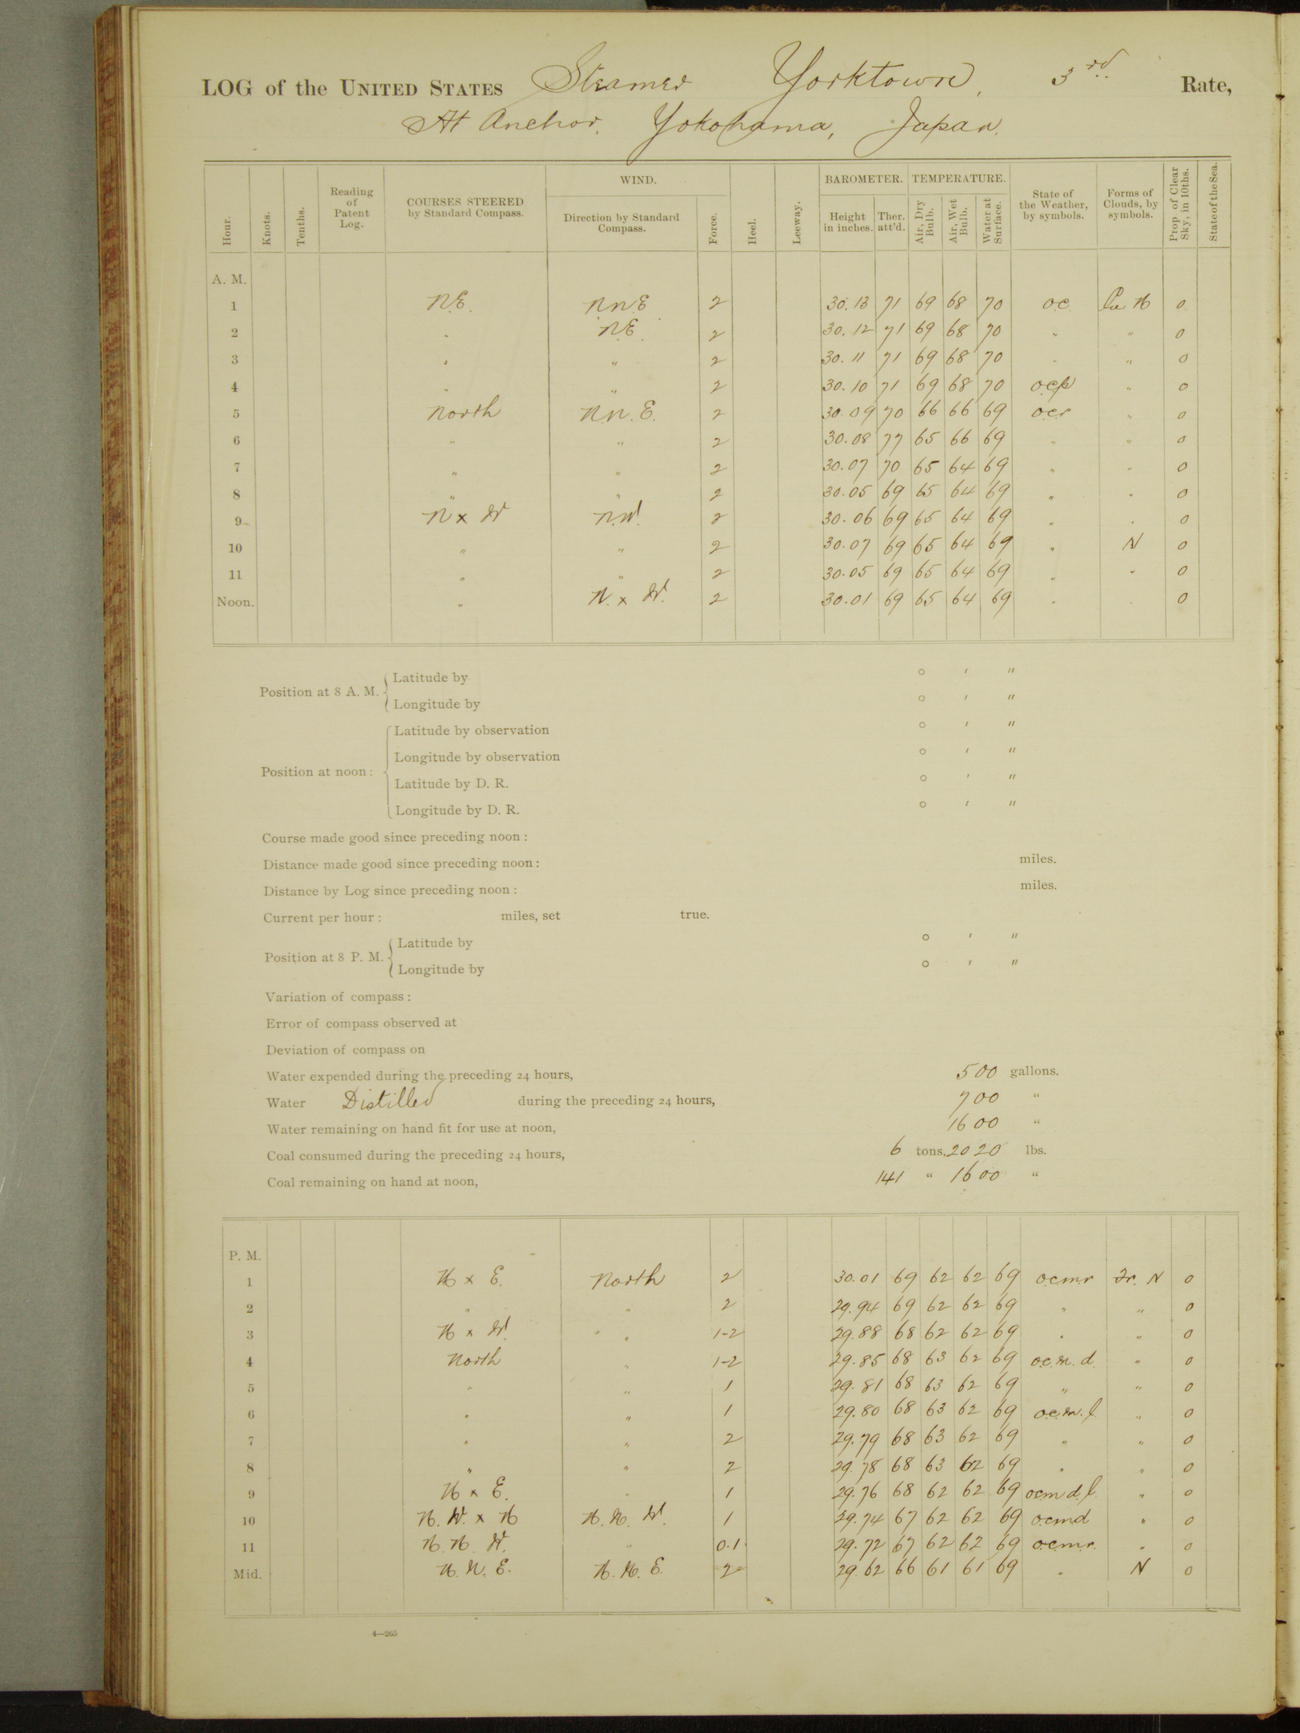 LOG of the UNITED STATES Steamer Yorktown, 3rd Rate,
At Anchor, Yokohama, Japan.
Hour. Knots. Tenths. Reading of Patent Log. COURSES STEERED by Standard Compass. WIND. Direction by Standard Compass. Force. Heel. Leeway. BAROMETER. Height in inches. Ther. att'd. TEMPERATURE. Air, Dry Bulb. Air, Wet Bulb. Water at Surface. State of the Weather, by symbols. Forms of Clouds, by symbols. Prop. of Clear Sky, in 10ths. State of the Sea.
A. M.
1 N.E. N.N.E. 2 30.13 71 69 68 70 o.c. Cu N 0
2 " N.E. 2 30.12 71 69 68 70 " " 0
3 " " 2 30.11 71 69 68 70 " " 0
4 " " 2 30.10 71 69 68 70 o.c.p " 0
5 North N.N.E. 2 30.09 70 66 66 69 o.c.r " 0
6 " " 2 30.08 77 65 66 69 " " 0
7 " " 2 30.07 70 65 64 69 " " 0
8 " " 2 30.05 69 65 64 69 " " 0
9 N x W N.W. 2 30.06 69 65 64 69 " " 0
10 " " 2 30.07 69 65 64 69 " N 0
11 " " 2 30.05 69 65 64 69 " " 0
Noon. " N. x W. 2 30.01 69 65 64 69 " " 0
Position at 8 A. M. Latitude by ° ′ ″
Longitude by ° ′ ″
Position at noon: Latitude by observation ° ′ ″
Longitude by observation ° ′ ″
Latitude by D. R. ° ′ ″
Longitude by D. R. ° ′ ″
Course made good since preceding noon:
Distance made good since preceding noon: miles.
Distance by Log since preceding noon: miles.
Current per hour: miles, set true.
Position at 8 P. M. Latitude by ° ′ ″
Longitude by ° ′ ″
Variation of compass:
Error of compass observed at
Deviation of compass on
Water expended during the preceding 24 hours, 500 gallons.
Water Distilled during the preceding 24 hours, 700 "
Water remaining on hand fit for use at noon, 1600 "
Coal consumed during the preceding 24 hours, 6 tons, 2020 lbs.
Coal remaining on hand at noon, 141 " 1600 "
P. M.
1 N x E. North 2 30.01 69 62 62 69 o.c.m.r Fr. N 0
2 " " 2 29.94 69 62 62 69 " " 0
3 N x W. " 1-2 29.88 68 62 62 69 " " 0
4 North " 1-2 29.85 68 63 62 69 o.c.m.d. " 0
5 " " 1 29.81 68 63 62 69 " " 0
6 " " 1 29.80 68 63 62 69 o.c.m.l " 0
7 " " 2 29.79 68 63 62 69 " " 0
8 " " 2 29.78 68 63 62 69 " " 0
9 N x E. " 1 29.76 68 62 62 69 o.c.m.d.l. " 0
10 N.W. x N N.N.W. 1 29.74 67 62 62 69 o.c.m.d " 0
11 N.N.W. " 0.1 29.72 67 62 62 69 o.c.m.r. " 0
Mid. N.N.E. N.N.E. 2 29.62 66 61 61 69 " N 0
4—265